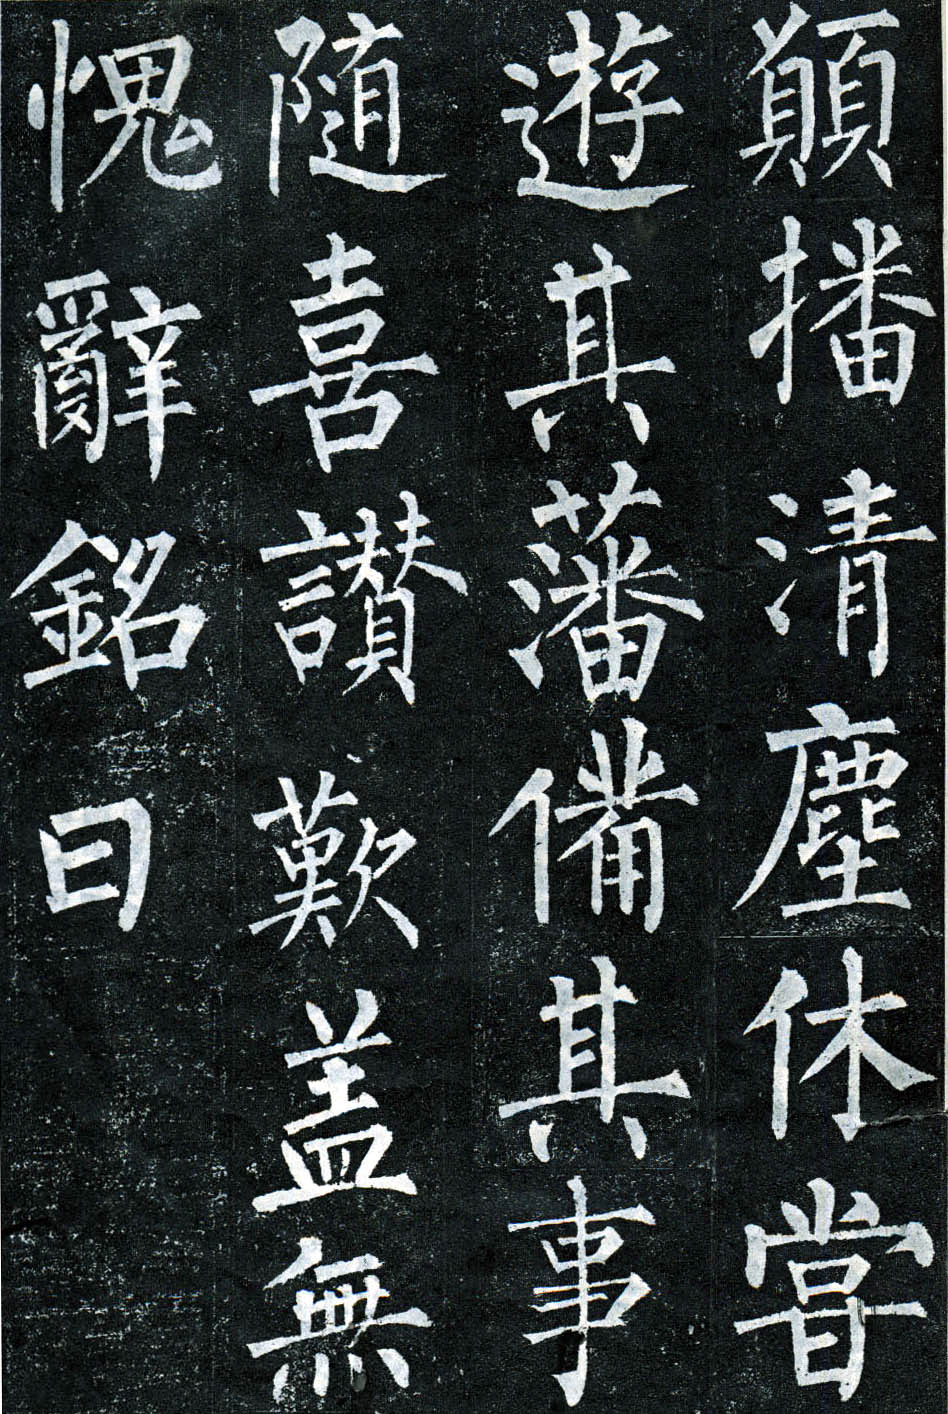 顚播清塵休甞
遊其藩備其事
隨喜讃歎盖無
愧辭銘曰